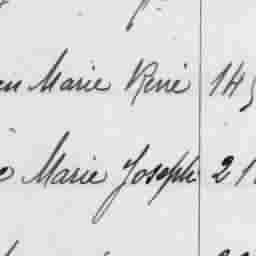 Marie René 14
Marie Joseph 21